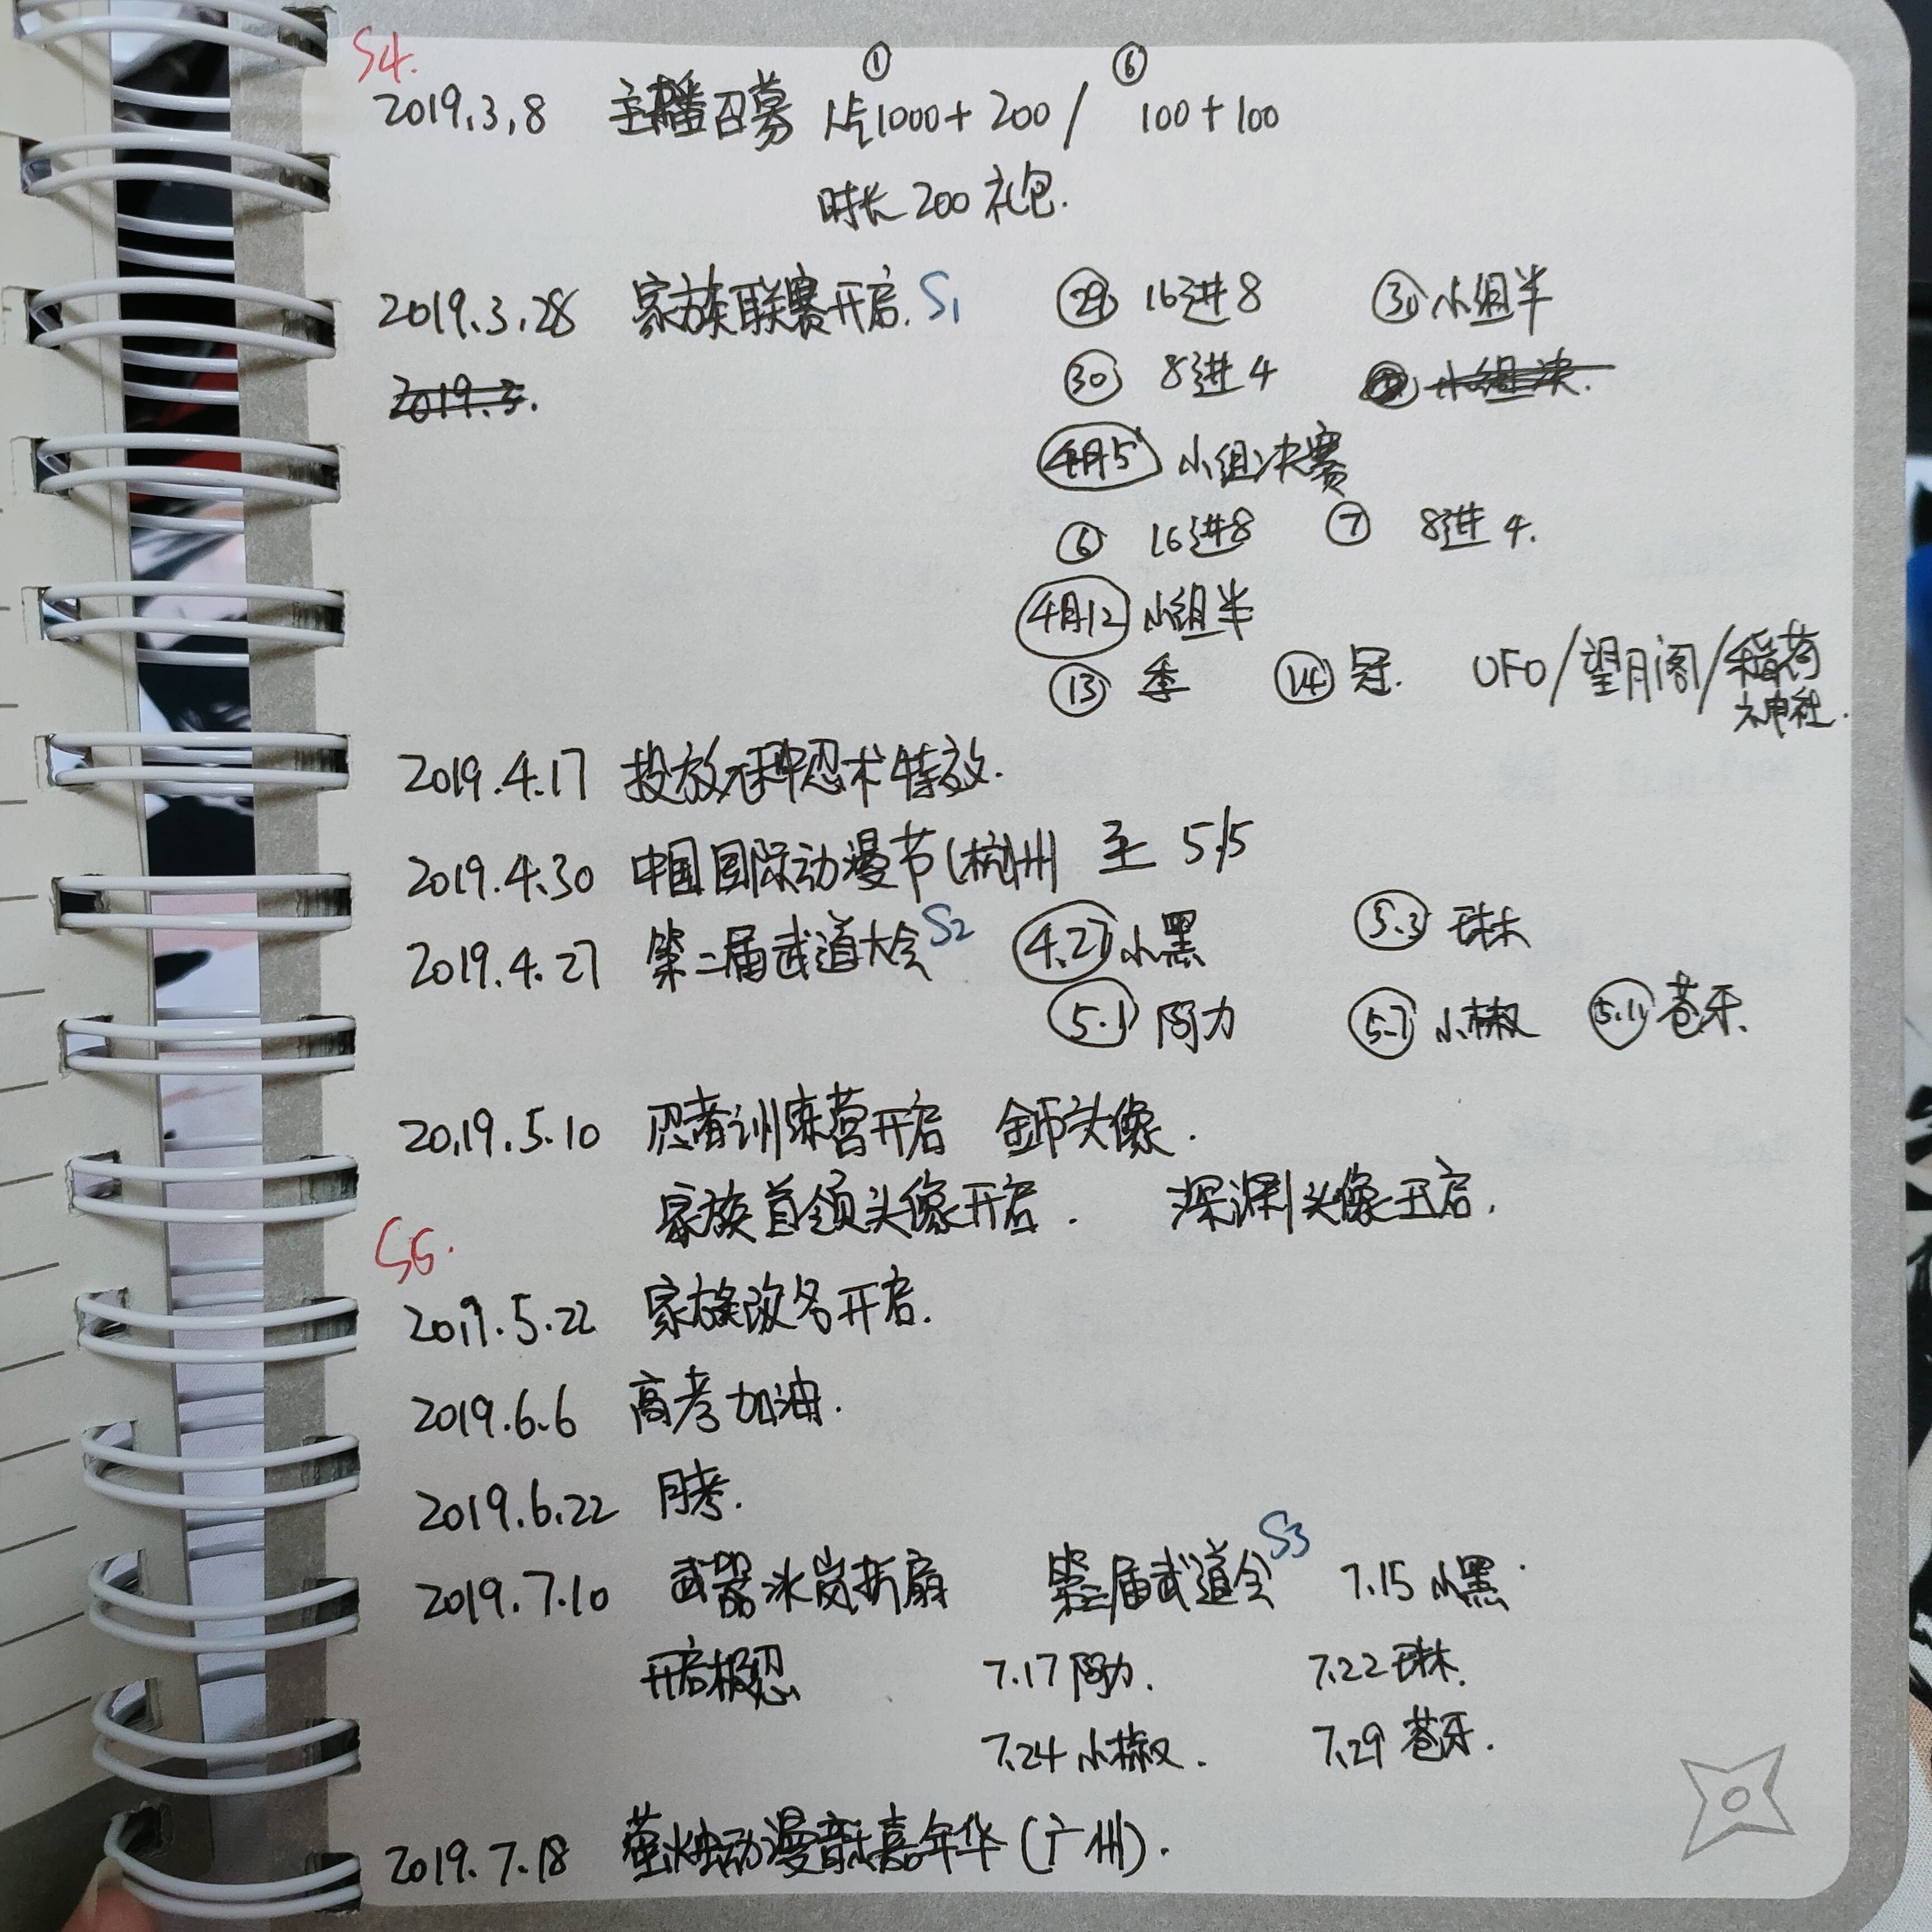 S4.
① ⑥
2019.3.8 主播召募 1000+200/ 100+100
时长200礼包.
2019.3.28 家族联赛开启. S1 ㉙ 16进8 ㉚小组半
2019.3. ㉚ 8进4 小组决.
4月5 小组决赛
⑥ 16进8 ⑦ 8进4.
4月12 小组半
⑬ 季 ⑭冠. UFO/望月阁/稻荷
神社.
2019.4.17 投放 忍术特效.
2019.4.30 中国国际动漫节(杭州 至 5.5
2019.4.27 第二届武道大会 S2 4.27 小黑 5.3 琳
5.1 阿力 5.7 小椒 5.11 苍牙.
2019.5.10 忍者训练营开启 金币头像.
家族首领头像开启. 深渊头像开启.
2019.5.22 家族改名开启.
2019.6.6 高考加油.
2019.6.22 月考.
2019.7.10 武器冰岚折扇 第三届武道会 S3 7.15 小黑
开启极忍 7.17 阿力. 7.22 琳.
7.24 小椒. 7.29 苍牙.
2019.7.18 萤火虫动漫 嘉年华(广州).